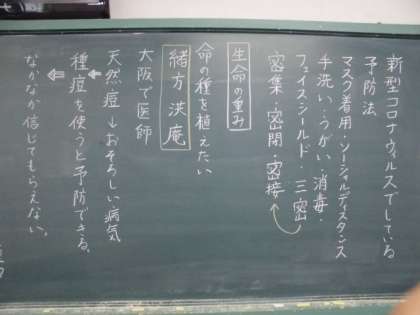 新型コロナウィルスでしている
予防法
マスク着用・ソーシャルディスタンス
手洗い・うがい・消毒・
フェイスシールド 三密
密集・密閉・密接
生命の重み
命の種を植えたい
緒方洪庵
大阪で医師
天然痘→おそろしい病気
種痘を使うと予防できる。
⇐なかなか信じてもらえない。